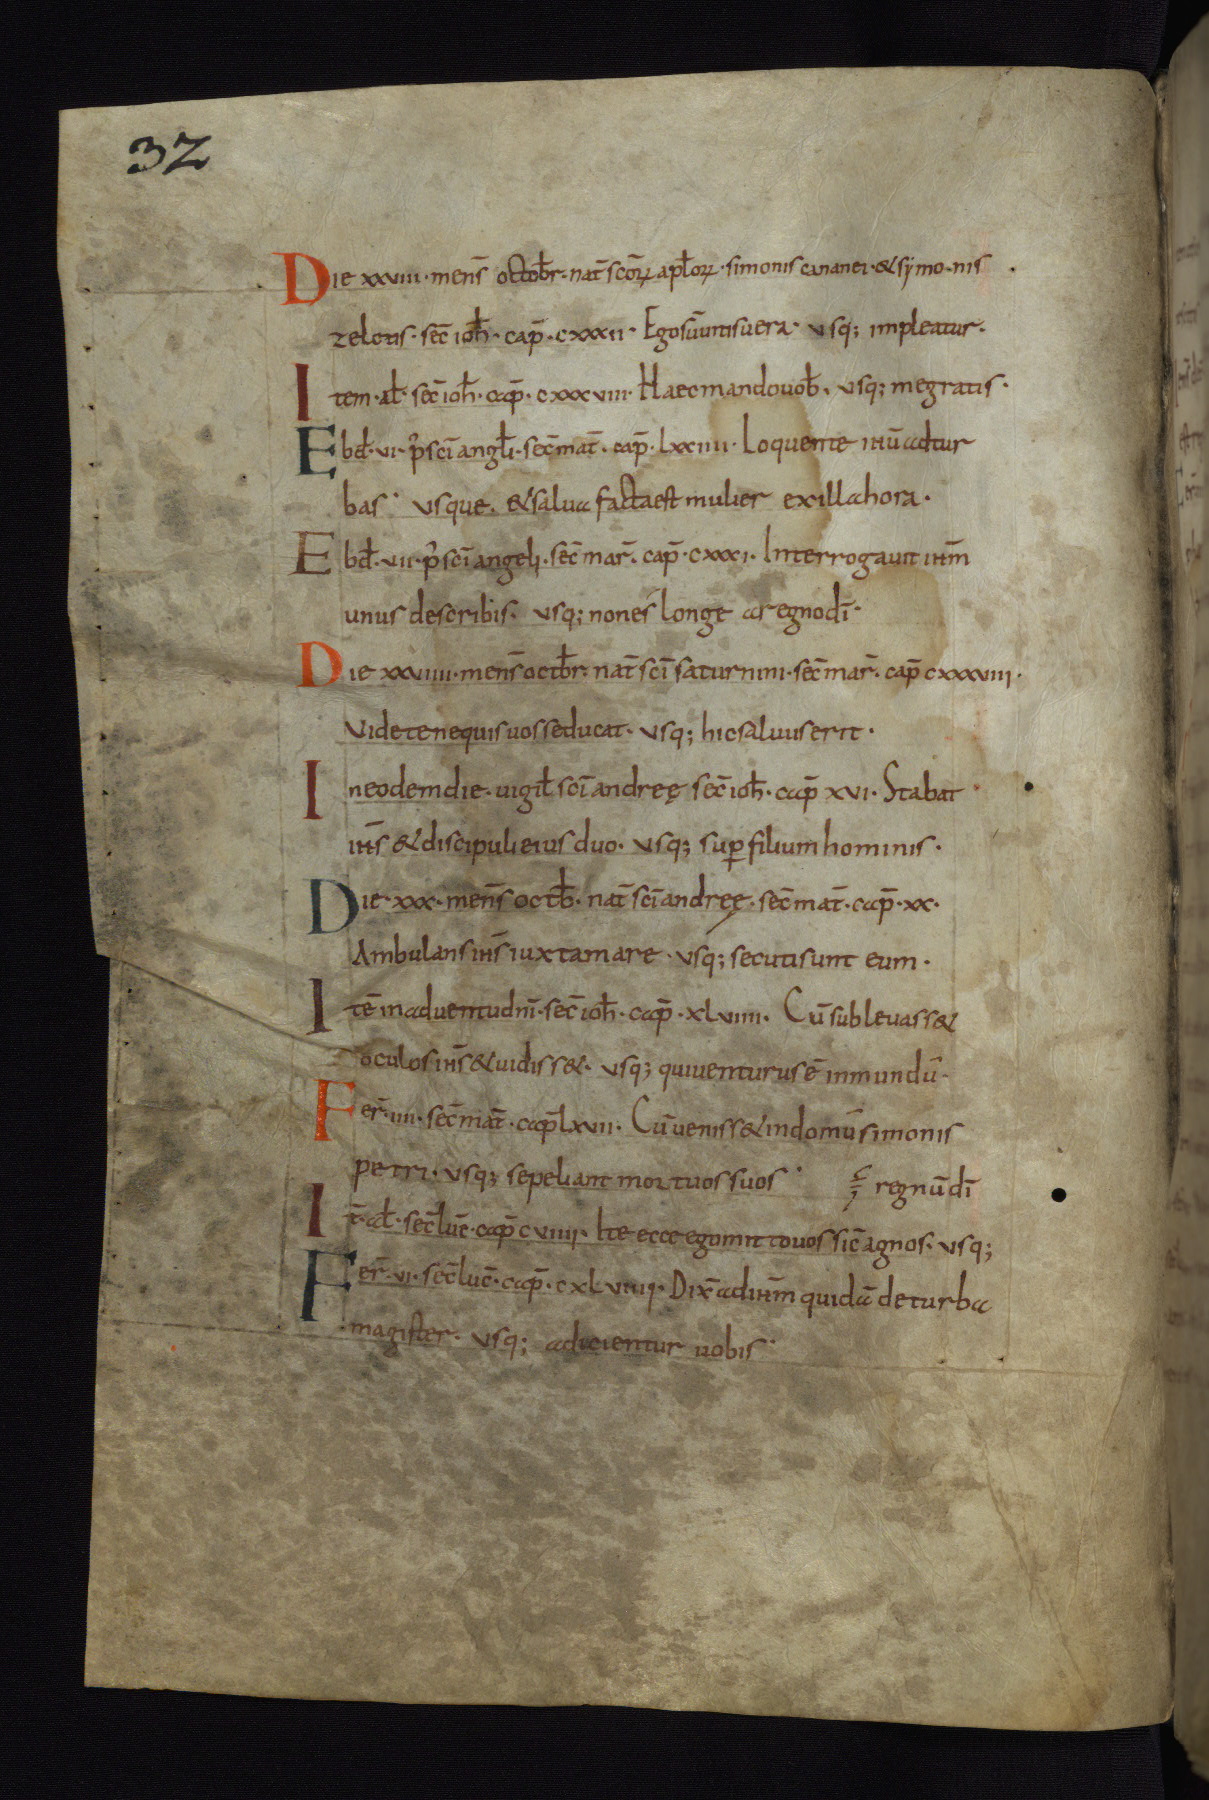 32
Die xxviii · mens̄ octob̄r · nat̄ scōꝝ apl̄oꝝ · simonis cananei · & symo·nis ·
zelotis · sec̄ ioh̄ · cap̄ · cxxxii · Ego sū uitis uera · usq; impleatur ·
Item · al̄ · sec̄ ioh̄ · cap̄ · cxxxviii · Haec mando uob̄ · usq; me gratis ·
Ebd̄ · vi · p̄ sc̄i angl̄i · sec̄ mat̄ · cap̄ · lxxiiii · Loquente ihū ad tur
bas · usque · & salua facta est mulier ex illa hora ·
Ebd̄ · vii · p̄ sc̄i angeli · sec̄ mar̄ · cap̄ · cxxxi · Interrogauit ihm̄
unus de scribis · usq; non es longe a regno dī ·
Die xxviiii · mens̄ octb̄r · nat̄ sc̄i saturnini · sec̄ mar̄ · cap̄ cxxxviii ·
Videte ne quis uos seducat · usq; hic saluus erit ·
In eodem die · uigil̄ sc̄i andreę sec̄ ioh̄ · cap̄ xvi · Stabat
ihs̄ & discipuli eius duo · usq; suꝑ filium hominis ·
Die · xxx · mens̄ octb̄ · nat̄ sc̄i andreę · sec̄ mat̄ · cap̄ · xx ·
Ambulans ihs̄ iuxta mare · usq; secuti sunt eum ·
Itē in aduentu dnī · sec̄ ioh̄ · cap̄ · xlviiii · Cū subleuass&
oculos ihs̄ & uidiss& · usq; qui uenturus ē in mundū ·
Fer̄ · iiii · sec̄ mat̄ · cap̄ lxvii · Cū ueniss& in domū simonis
petri · usq; sepeliant mortuos suos · regnū dī
It̄ · al̄ · sec̄ luc̄ · cap̄ cviiii · Ite ecce ego mitto uos sic̄ agnos · usq;
Fer̄ · vi · sec̄ luc̄ · cap̄ · cxlviiii · Dix̄ ad ihm̄ quidā de turba
magister · usq; adicientur uobis ·